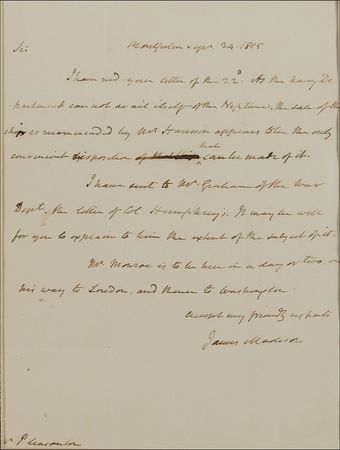 Sir Montpelier Sepr. 24. 1815
I have recd. your letter of the 22d. As the Navy De
partment can not avail itself of the Neptune, the sale of the
ship as recommended by Mr. Harrison appears to be the only
convenient disposition that can be made of it.
I have sent to Mr. Graham of the War
Dept. the letter of Col. Humphreys; It may be well
for you to explain to him the extent of the subject of it.
Mr. Monroe is to be here in a day or two on
his way to Loudon, and thence to Washington
Accept my friendly respects
James Madison
Mr. Pleasonton